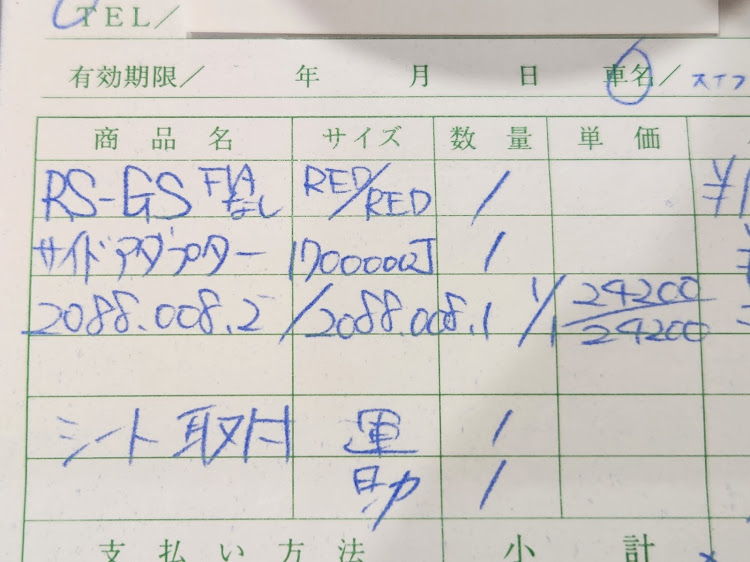 TEL／
有効期限／ 年 月 日 車名／ スイフ
商品名 サイズ 数量 単価
RS-GS FIA なし RED/RED 1
サイドアダプター 1
2088.008.2 / 2088.008.1 1/1 24200/24200
シート取付 運 1
助 1
支払い方法 小計